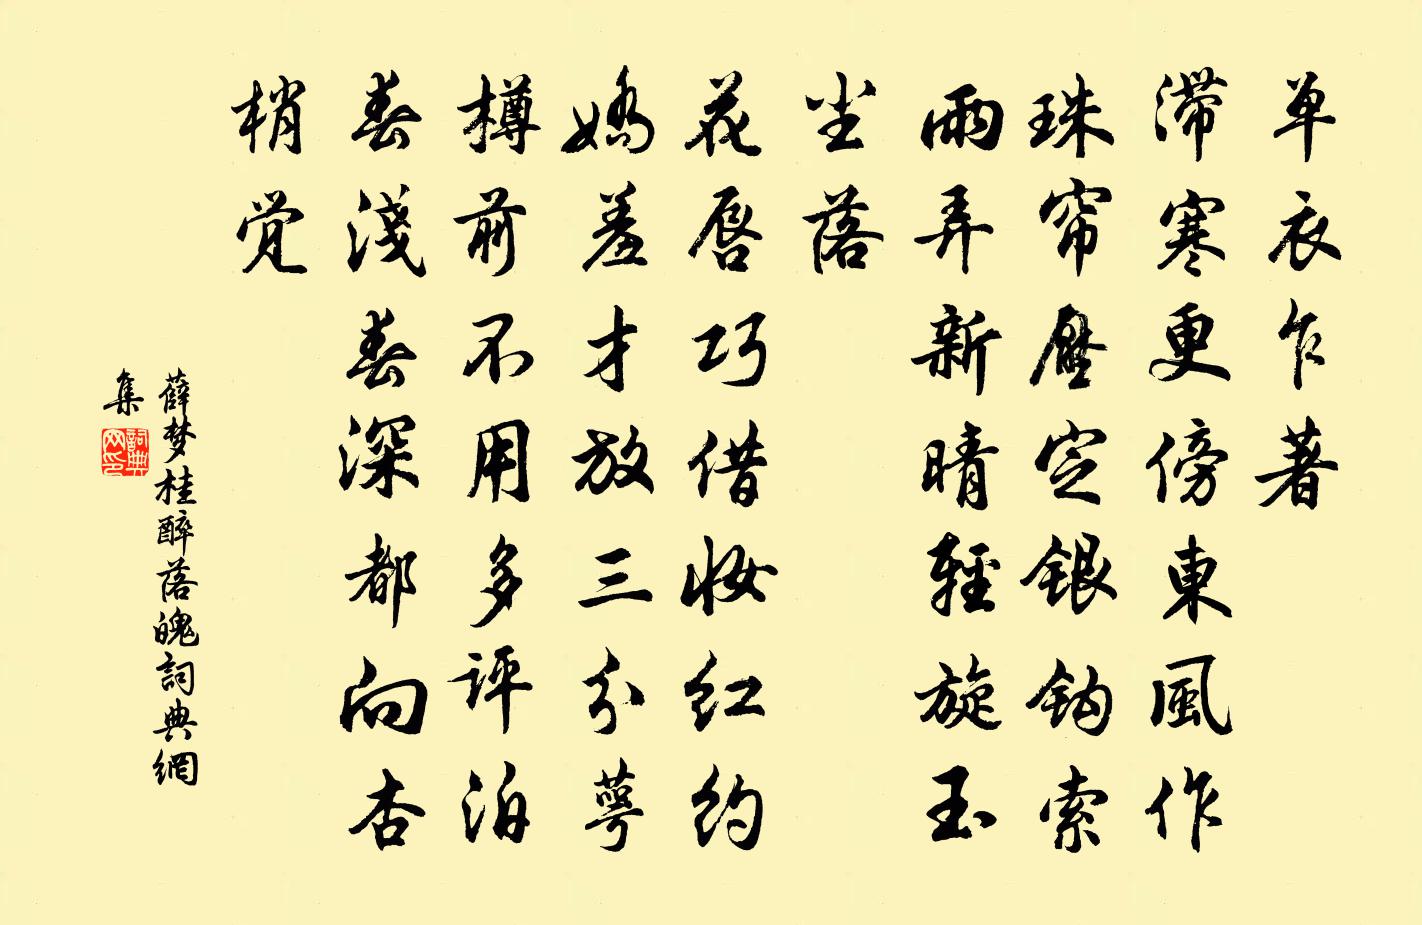 单衣乍著
滞寒更傍東風作
珠帘壓定银钩索
雨弄新晴輕旋玉
尘落
花唇巧借妆红约
嬌羞才放三分萼
樽前不用多评泊
春淺春深都向杏
梢觉
薛梦桂醉落魄詞典網
集
詞典网印